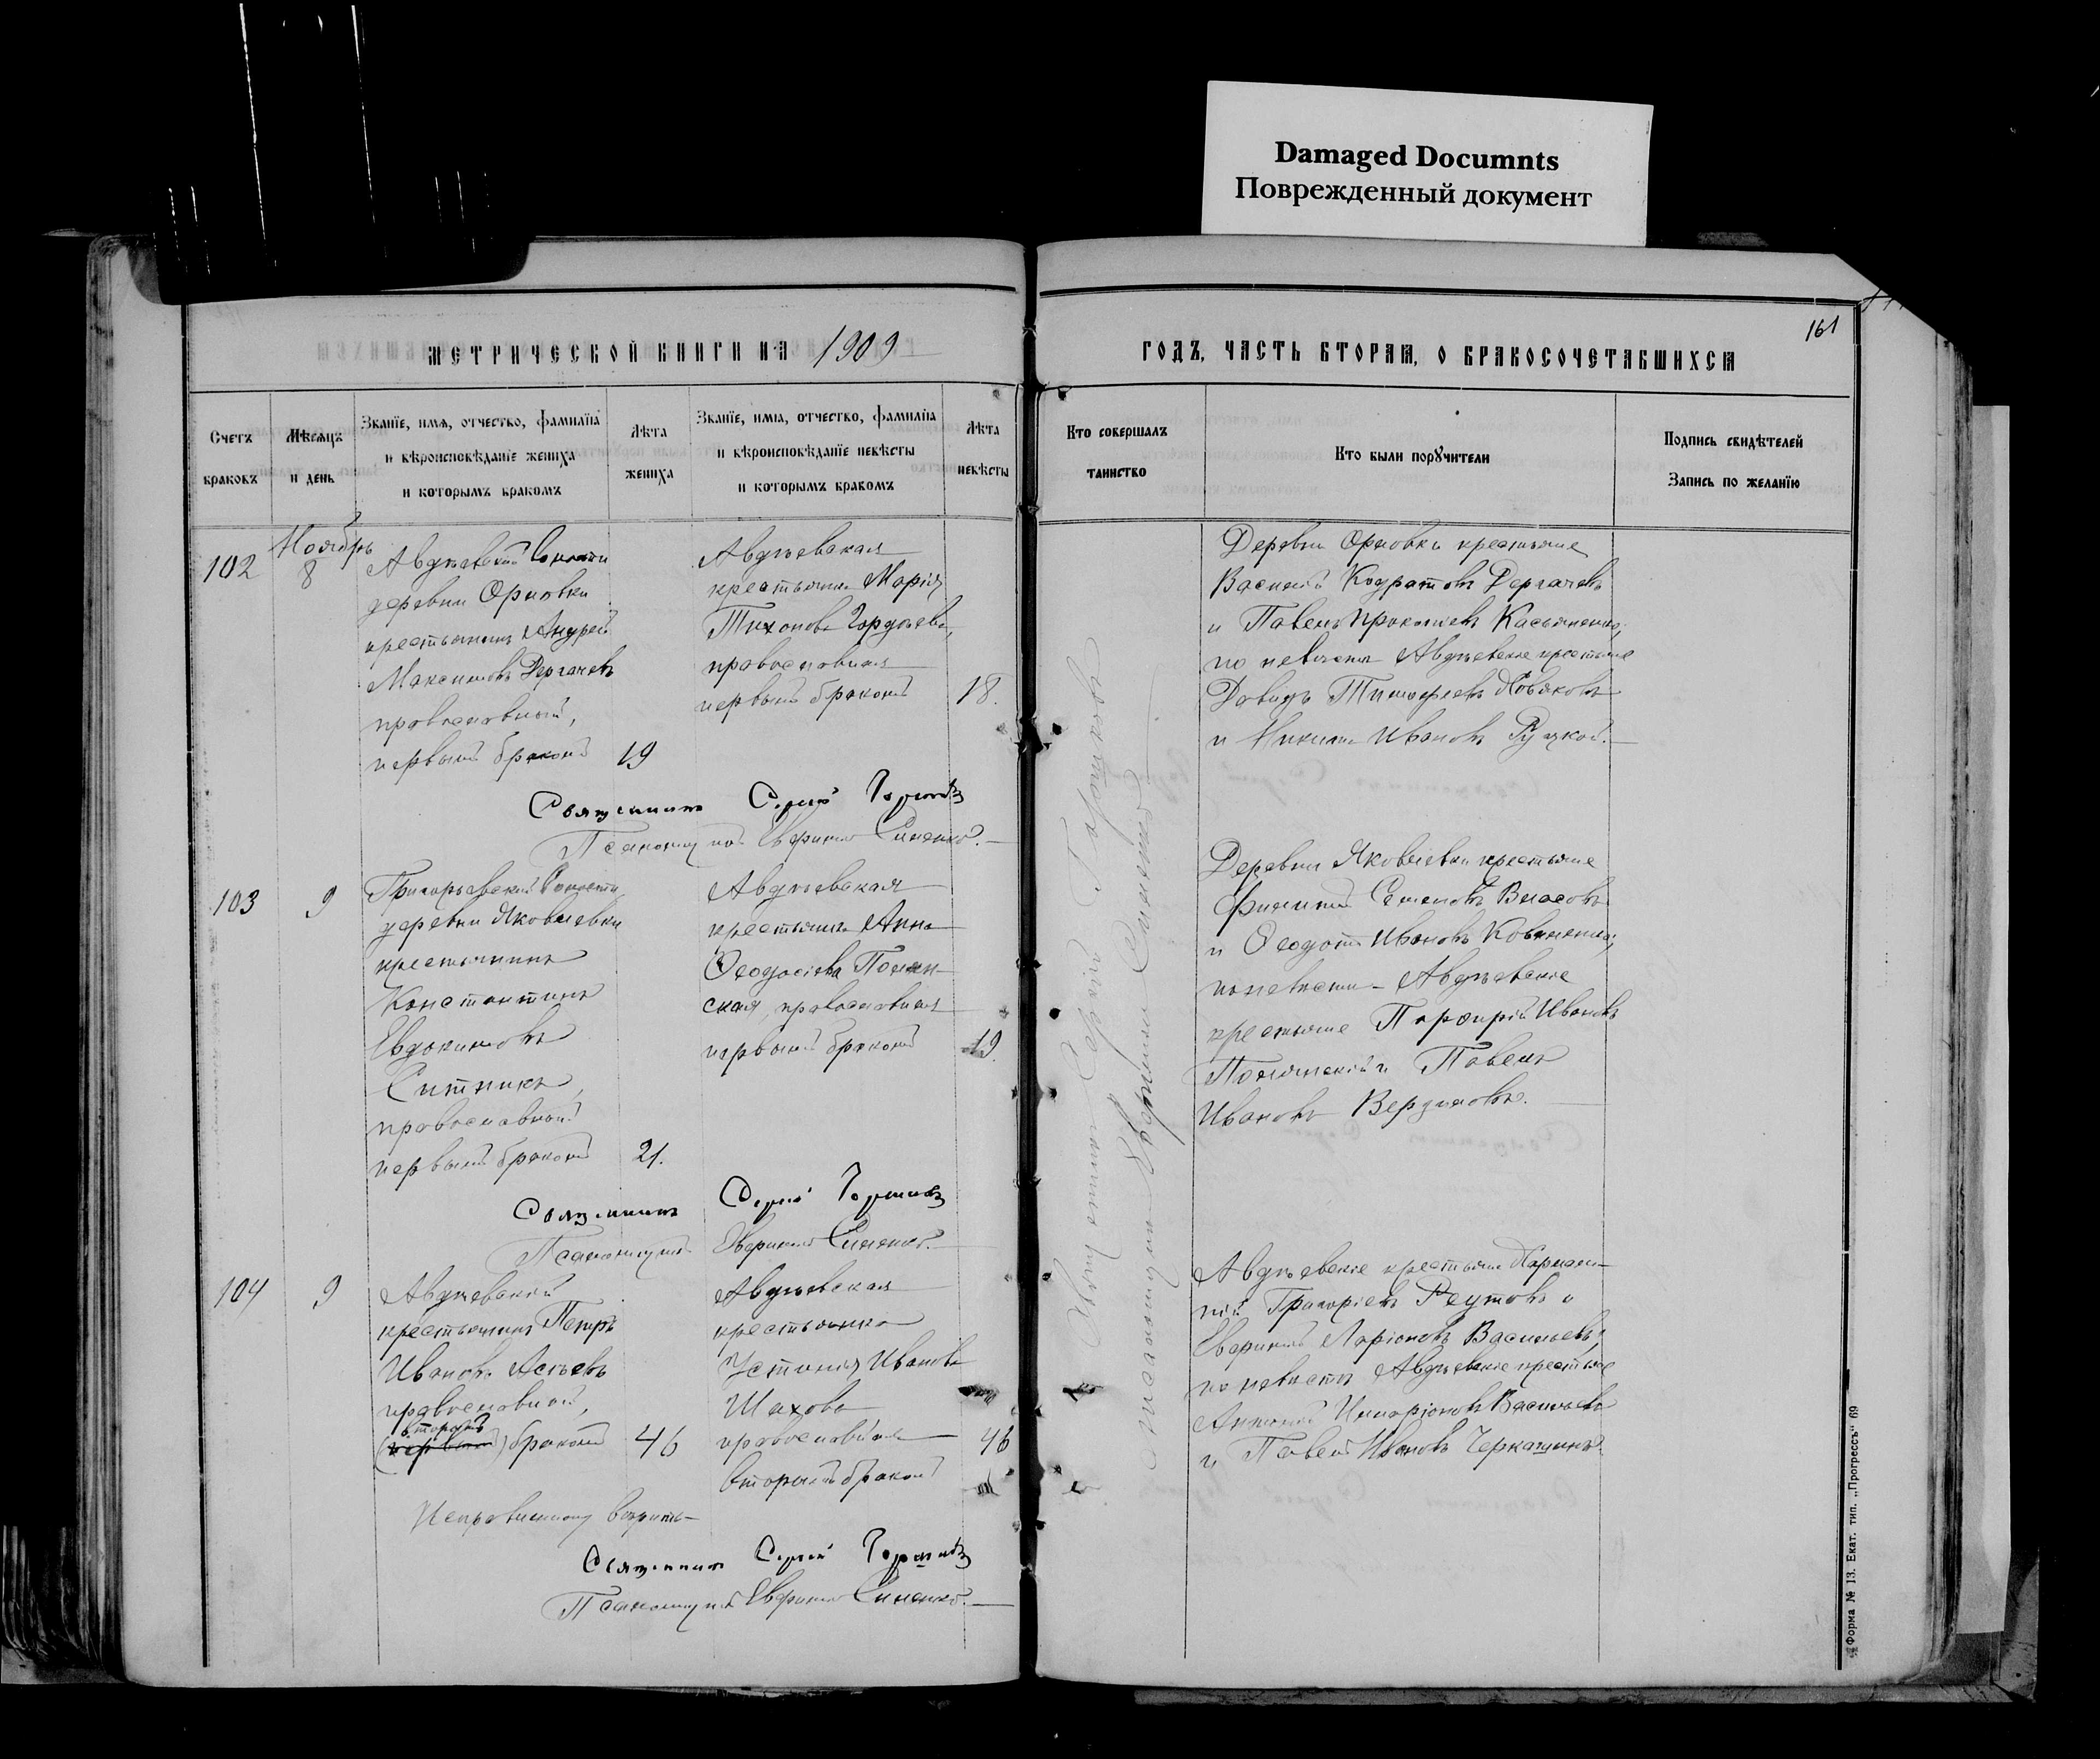 Damaged Documnts
Поврежденный документ
161
МЕТРИЧЕСКОЙ КНИГИ НА 1909
ГОДЪ, ЧАСТЬ ВТОРАЯ, О БРАКОСОЧЕТАВШИХСЯ
Счетъ браковъ
Мѣсяцъ и день
Званїе, имя, отчество, фамилїя и вѣроисповѣданїе жениха и которымъ бракомъ
Лѣта жениха
Званїе, имя, отчество, фамилїя и вѣроисповѣданїе невѣсты и которымъ бракомъ
Лѣта невѣсты
Кто совершалъ таинство
Кто были порꙋчители
Подпись свидѣтелей
Запись по желанїю
102
Ноябрь
8
Авдѣевской волости
деревни Орловки
крестьянинъ Андрей
Максимовъ Дергачевъ
православный,
первымъ бракомъ
19
Авдѣевская
крестьянка Марія
Тихонова Гордѣева,
православная
первымъ бракомъ
18.
Деревни Орловки крестьяне
Василій Кодратовъ Дергачевъ
и Павелъ Прокопіевъ Касьяненко;
по невѣстѣ Авдѣевскіе крестьяне
Давидъ Тимофеевъ Новаковъ
и Никита Ивановъ Руцкой.
Священникъ Сергій Горшковъ
Псаломщикъ Евфимій Синенко.
103
9
Григорьевской волости
деревни Яковлевки
крестьянинъ
Константинъ
Евдокимовъ
Ситникъ,
православный
первымъ бракомъ
21.
Авдѣевская
крестьянка Анна
Ѳеодосіева Полян-
ская, православная
первымъ бракомъ
19.
Деревни Яковлевки крестьяне
Филиппъ Семеновъ Власовъ
и Ѳеодотъ Ивановъ Коваленко;
по невѣстѣ - Авдѣевскіе
крестьяне Порфирій Ивановъ
Полянскій и Павелъ
Ивановъ
Священникъ Сергій Горшковъ
Псаломщикъ Евфимій Синенко.
104
9
Авдѣевскій
крестьянинъ Петръ
Ивановъ
православный,
вторымъ
(первымъ) бракомъ
46
Авдѣевская
крестьянка
Устинія Иванова
Шахова
православная
вторымъ бракомъ
46
Авдѣевскіе крестьяне
Григоріевъ Реутовъ и
Ларіоновъ Васильевъ;
по невѣстѣ Авдѣевскіе крестьяне
Антоній Илларіоновъ Васильевъ
и Павелъ Ивановъ Черкашинъ.
Исправленному вѣрить
Священникъ Сергій Горшковъ
Псаломщикъ Евфимій Синенко.
Священникъ Сергій Горшковъ
Псаломщикъ Евфимій Синенко
Форма № 13. Екат. тип. „Прогрессъ“ 69